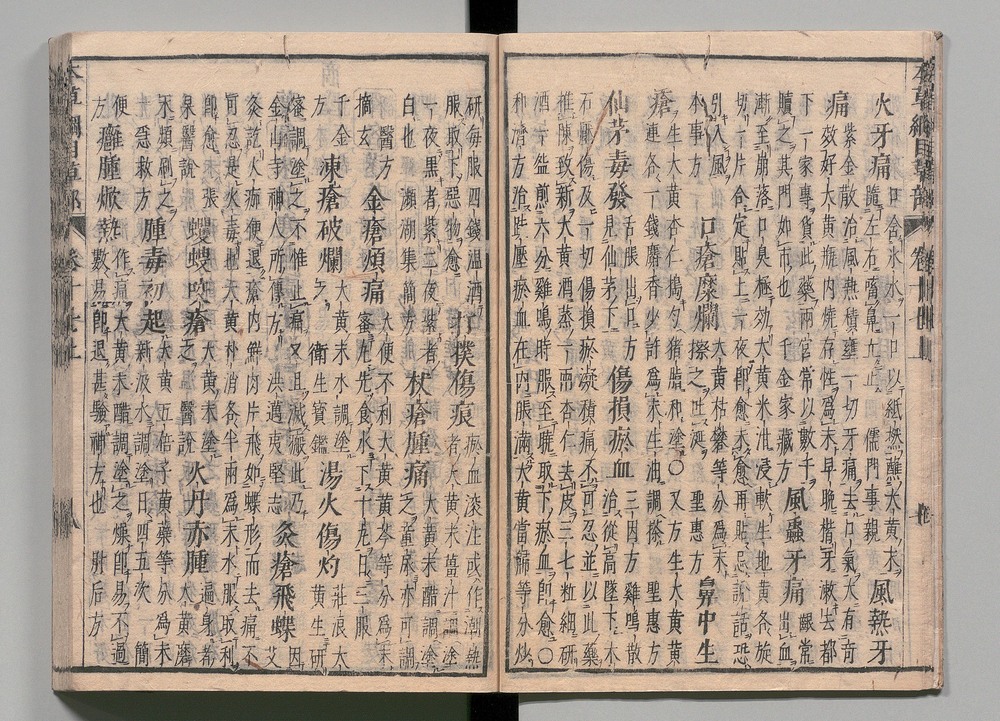 火牙痛
口含冰水一口以紙撚蘸大黃末
隨左右㗜鼻立止 儒門事親
風熱牙
痛
紫金散治風熱積壅一切牙痛去口氣大有奇
效好大黃瓶內燒存性爲末早晚揩牙漱去都
下一家專貨此藥兩宮常以數千
贖之其門如市也 千金家藏方
風蟲牙痛
齦常
出血
漸至崩落口臭極效大黃米泔浸軟生地黃各旋
切一片合定貼上一夜即愈未愈再貼忌說話恐
引入風
本事方
口瘡糜爛
大黃枯礬等分爲末
擦之吐涎 聖惠方
鼻中生
瘡
生大黃杏仁搗勻猪脂和塗○又方生大黃
黃連各一錢麝香少許爲末生油調搽 聖惠方
仙茅毒發
舌脹出口方
見仙茅下
傷損瘀血
三因方雞鳴散
治從高墜下木
石壓傷及一切傷損瘀凝積痛不可忍並以此藥
推陳致新大黃酒蒸一兩杏仁去皮三七粒細研
酒一盌煎六分雞鳴時服至曉取下瘀血即愈○
和濟方治跌壓瘀血在內脹滿大黃當歸等分炒
研每服四錢溫酒
服取下惡物愈
打撲傷痕
瘀血滚注或作潮熱
者大黃末薑汁調塗
一夜黑者紫二夜紫者
白也 瀕湖集簡方
杖瘡腫痛
大黃末醋調塗
之童尿亦可調
醫方
摘玄
金瘡煩痛
大便不利大黃黃芩等分爲末
蜜丸先食水下十丸日三服
千金
方
凍瘡破爛
大黃末水調塗
之 衛生寶鑑
湯火傷灼
莊浪大
黃生研
蜜調塗之不惟止痛又且滅瘢此乃
金山寺神人所傳方 洪邁夷堅志
灸瘡飛蝶
因
艾
灸訖火痂便退瘡內鮮肉片飛如蝶形而去痛不
可忍是火毒也大黃朴消各半兩爲末水服取利
即愈 張
杲醫說
蠼螋咬瘡
大黃末塗
之 醫說
火丹赤腫
遍身者
大黃磨
水頻刷之
急救方
腫毒初起
大黃五倍子黃蘗等分爲末
新汲水調塗日四五次 簡
便
方
癰腫焮熱
作痛大黃末醋調塗之燥即易不過
數易即退甚驗神方也 肘后方